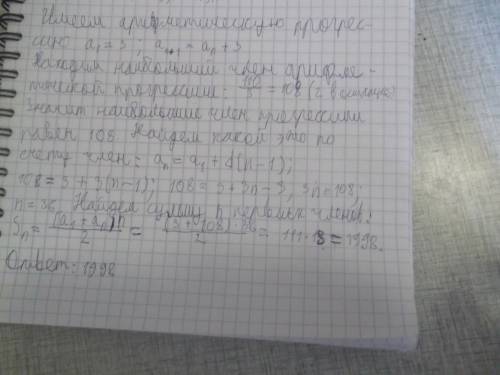 Имеем арифметическую прогрес-
сию a₁=3, aₙ₊₁ = aₙ + 3
Находим наибольший член арифме-
тической прогрессии: = 108 (2 в остатке)
значит наибольший член прогрессии
равен 108. Найдем какой это по
счету член: aₙ = a₁ + d(n-1);
108 = 3 + 3(n-1); 108 = 3 + 3n - 3, 3n = 108;
n = 36. Найдем сумму n первых членов:
Sₙ = (a₁ + aₙ)n / 2 = (3 + 108)·36 / 2 = 111·18 = 1998.
Ответ: 1998